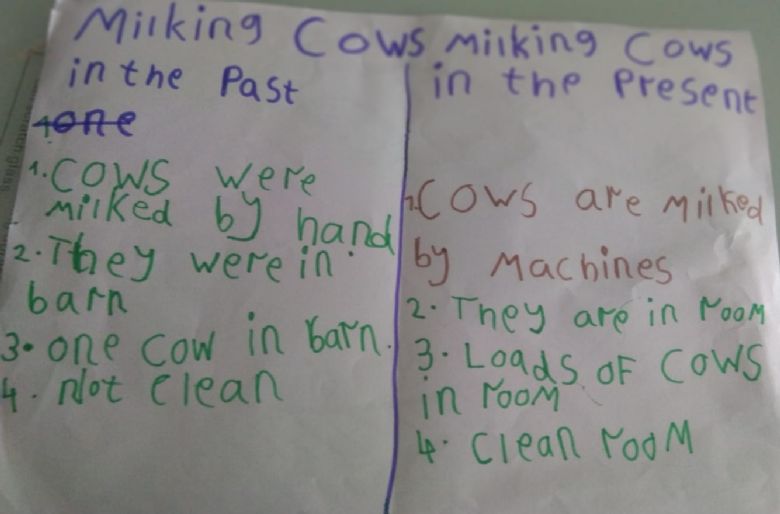 Milking Cows
in the Past
one
1. Cows were
milked by hand
2. They were in
barn
3. one cow in barn.
4. Not clean
Milking Cows
in the Present
1. Cows are milked
by Machines
2. They are in room
3. Loads of cows
in room
4. Clean room